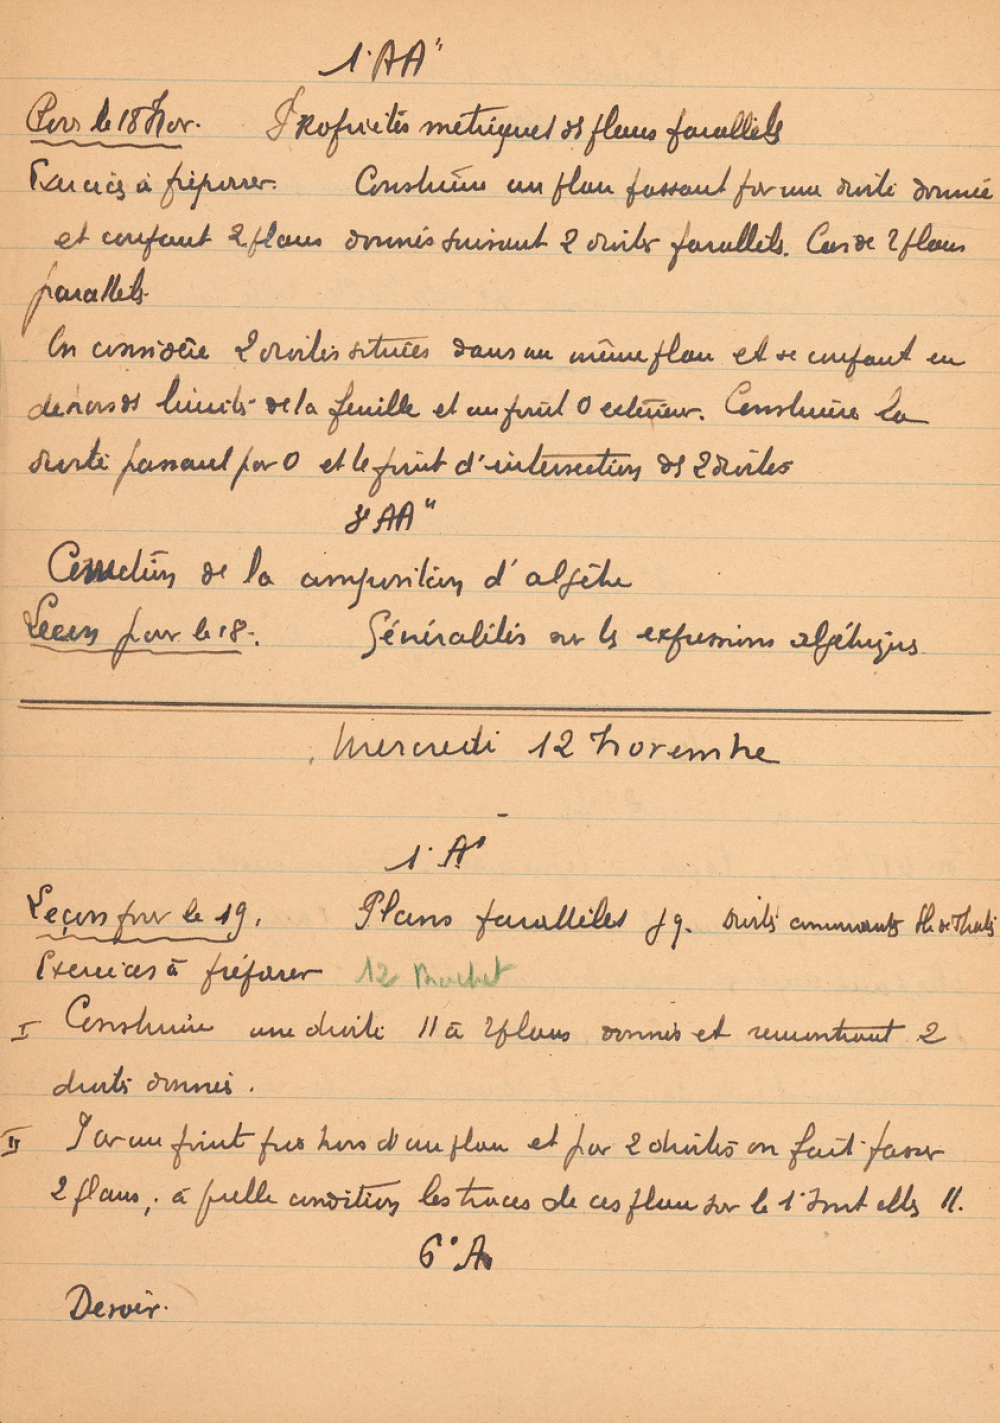 1° AA"
Pour le 18 Nov. Propriétés métriques des plans parallèles
Exercices à préparer. Construire un plan passant par une droite donnée
et coupant 2 plans donnés suivant 2 droites parallèles. Cas de 2 plans
parallèles.
On considère 2 droites situées dans un même plan et se coupant en
dehors des limites de la feuille et un point O extérieur. Construire la
droite passant par O et le point d'intersection des 2 droites
AA"
Correction de la composition d'algèbre
Leçon pour le 18. Généralités sur les expressions algébriques
Mercredi 12 Novembre
1° A'
Leçons pour le 19. Plans parallèles droites concourantes Th de Thalès
Exercices à préparer 12
I Construire une droite // à 2 plans donnés et rencontrant 2
droites données.
II Par un point pris hors d'un plan et par 2 droites on fait passer
2 plans, à quelle condition les traces de ces plans sur le 1° sont elles //.
6° A
Devoir.